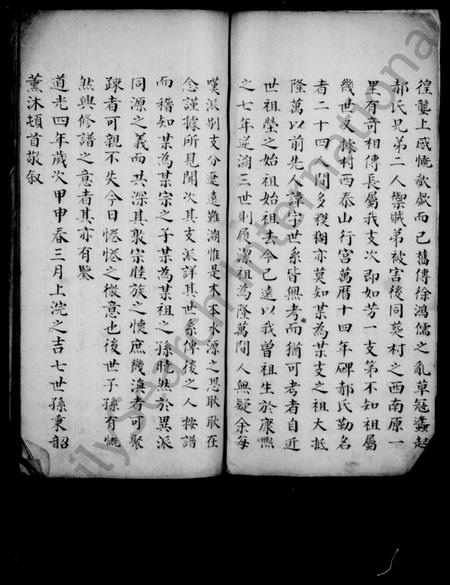 徨壟上感慨欷歔而已舊傳徐鴻儒之亂草冦蠭起
郝氏兄弟二人禦賊弟被害後同葬村之西南原一
里有奇相傳長屬我支次即如芳一支第不知祖屬
幾世又據村西泰山行宮萬曆十四年碑郝氏勒名
者二十四間多糢糊亦莫知某為某支之祖大抵
隆萬以前先人諱字世系皆無考而猶可考者自近
世祖瑩之始祖始祖去今已遠以我曾祖生於康熙
之七年逆溯三世則原潔祖為隆萬間人無疑余每
嘆派别支分遷遠難溯惟是木本水源之思耿耿在
念謹據所見聞次其支派詳其世系俾後之人按譜
而稽知某為某宗之子某為某祖之孫曉然於異派
同源之義而共深其敦宗睦族之懷庶幾渙者可聚
疎者可親不失今日惓惓之微意也後世子孫有慨
然興修譜之意者其亦有鑒
道光四年歲次甲申春三月上浣之吉七世孫秉韶
薰沐頓首敬叙
ilySearch International